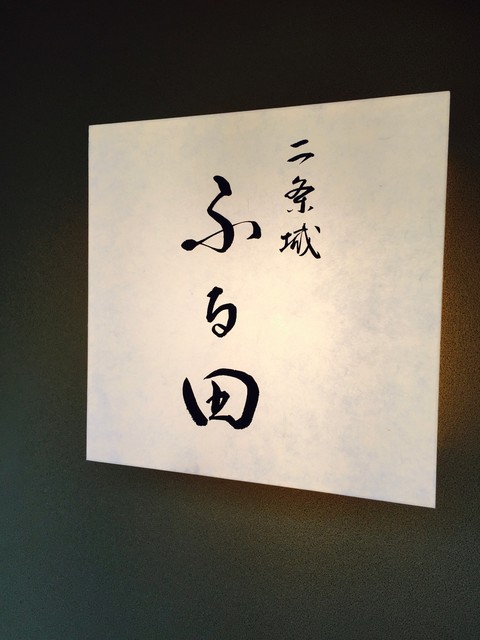 二条城
ふる田